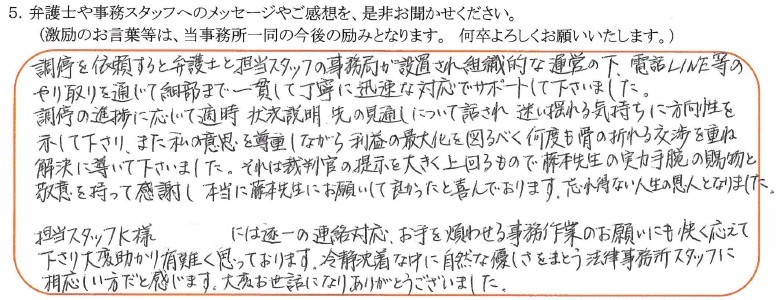 5. 弁護士や事務スタッフへのメッセージやご感想を、是非お聞かせください。
(激励のお言葉等は、当事務所一同の今後の励みとなります。 何卒よろしくお願いいたします。)
調停を依頼すると弁護士と担当スタッフの事務局が設置され組織的な運営の下、電話LINE等の
やり取りを通じて細部まで一貫して丁寧に迅速な対応でサポートして下さいました。
調停の進捗に応じて適時 状況説明、先の見通しについて話され 迷い揺れる気持ちに方向性を
示して下さり、また私の意思を尊重しながら利益の最大化を図るべく何度も骨の折れる交渉を重ね
解決に導いて下さいました。それは裁判官の提示を大きく上回るもので藤本先生の実力手腕の賜物と
敬意を持って感謝し 本当に藤本先生にお願いして良かったと喜んでおります。忘れ得ない人生の恩人となりました。
担当スタッフK様 には逐一の連絡対応、お手を煩わせる事務作業のお願いにも快く応えて
下さり大変助かり有難く思っております。冷静沈着な中に自然な優しさをまとう法律事務所スタッフに
相応しい方だと感じます。大変お世話になりありがとうございました。